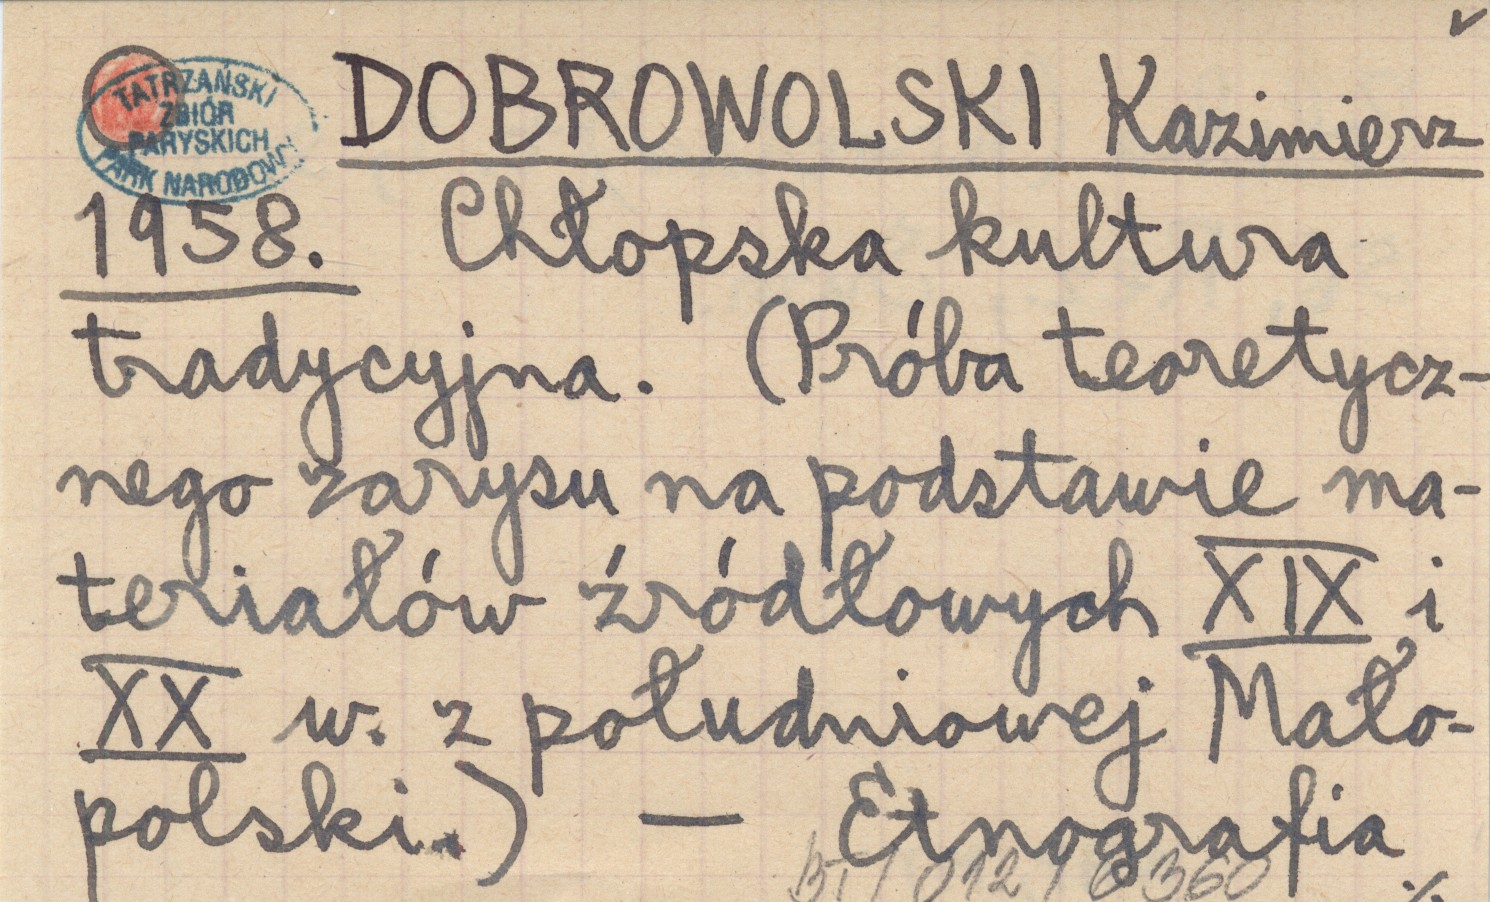 TATRZAŃSKI
ZBIÓR
PARYSKICH
PARK NARODOWY
DOBROWOLSKI Kazimierz
1958. Chłopska kultura
tradycyjna. (Próba teoretycz-
nego zarysu na podstawie ma-
teriałów źródłowych XIX i
XX w. z południowej Mało-
polski.) — Etnografia